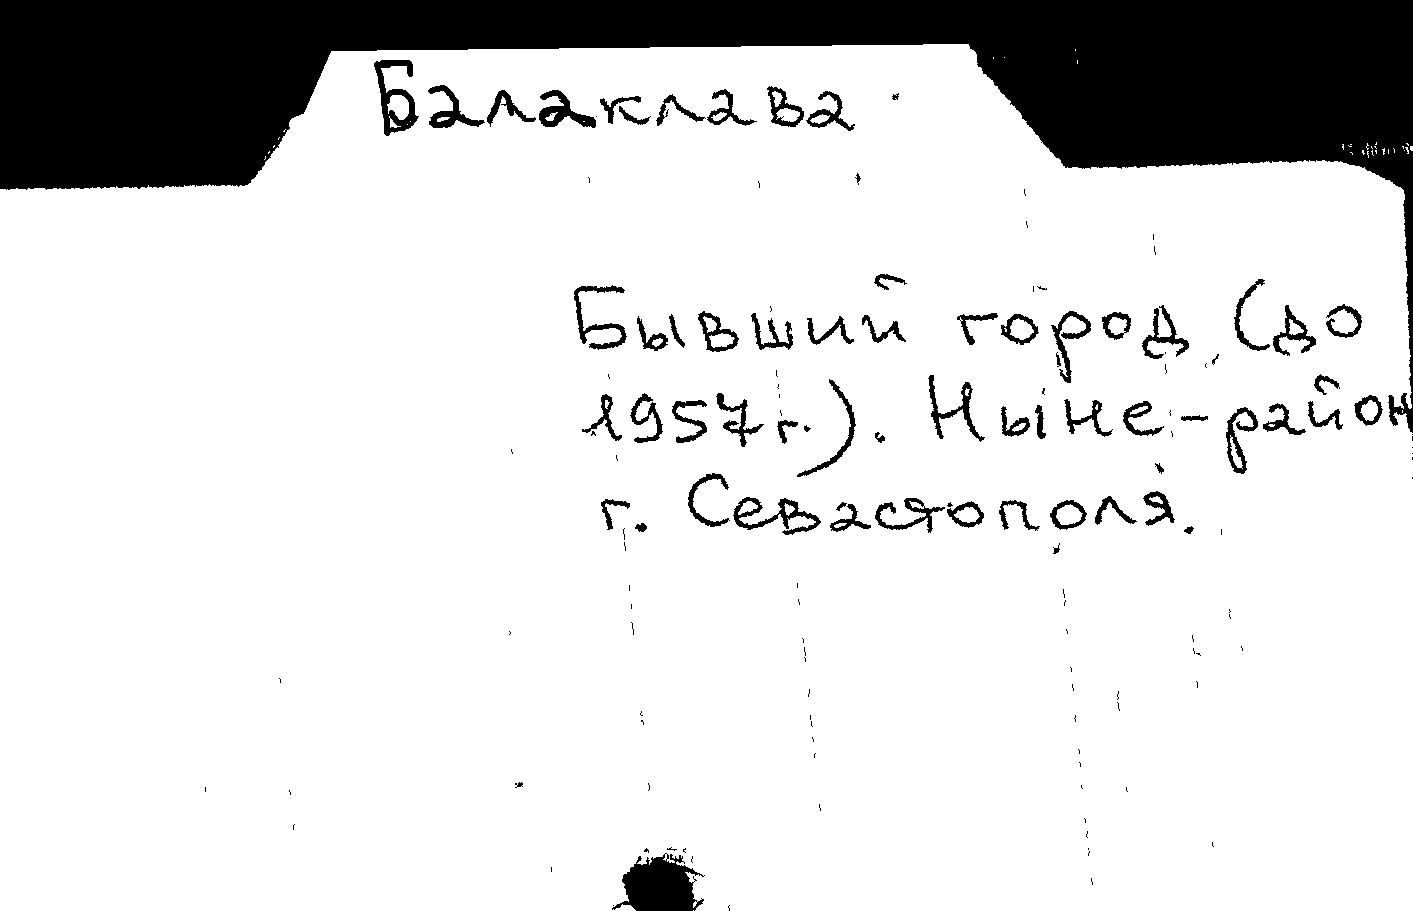 Балаклава
Бывший город (до
1957 г.). Ныне - район
г. Севастополя.